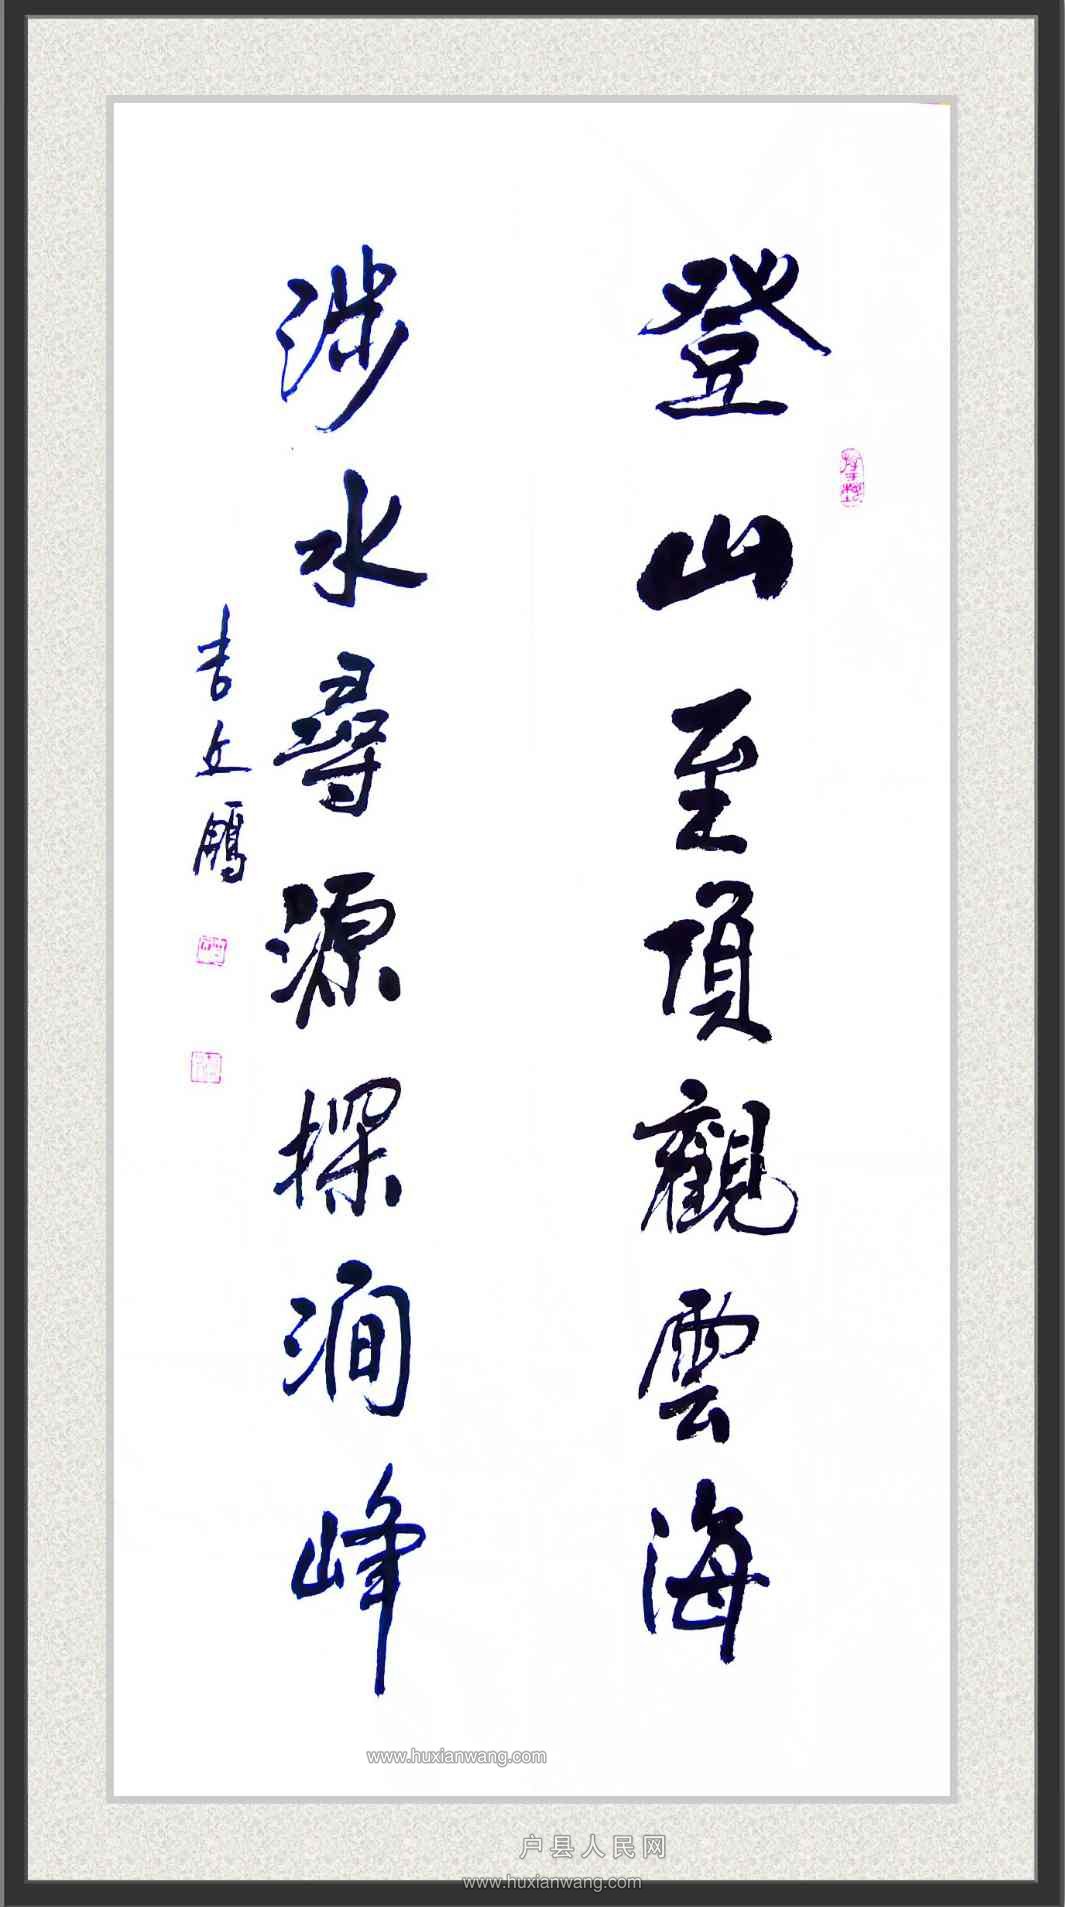 登山至頂觀雲海
涉水尋源探澗峰
www.huxianwang.com
户县人民网
www.huxianwang.com